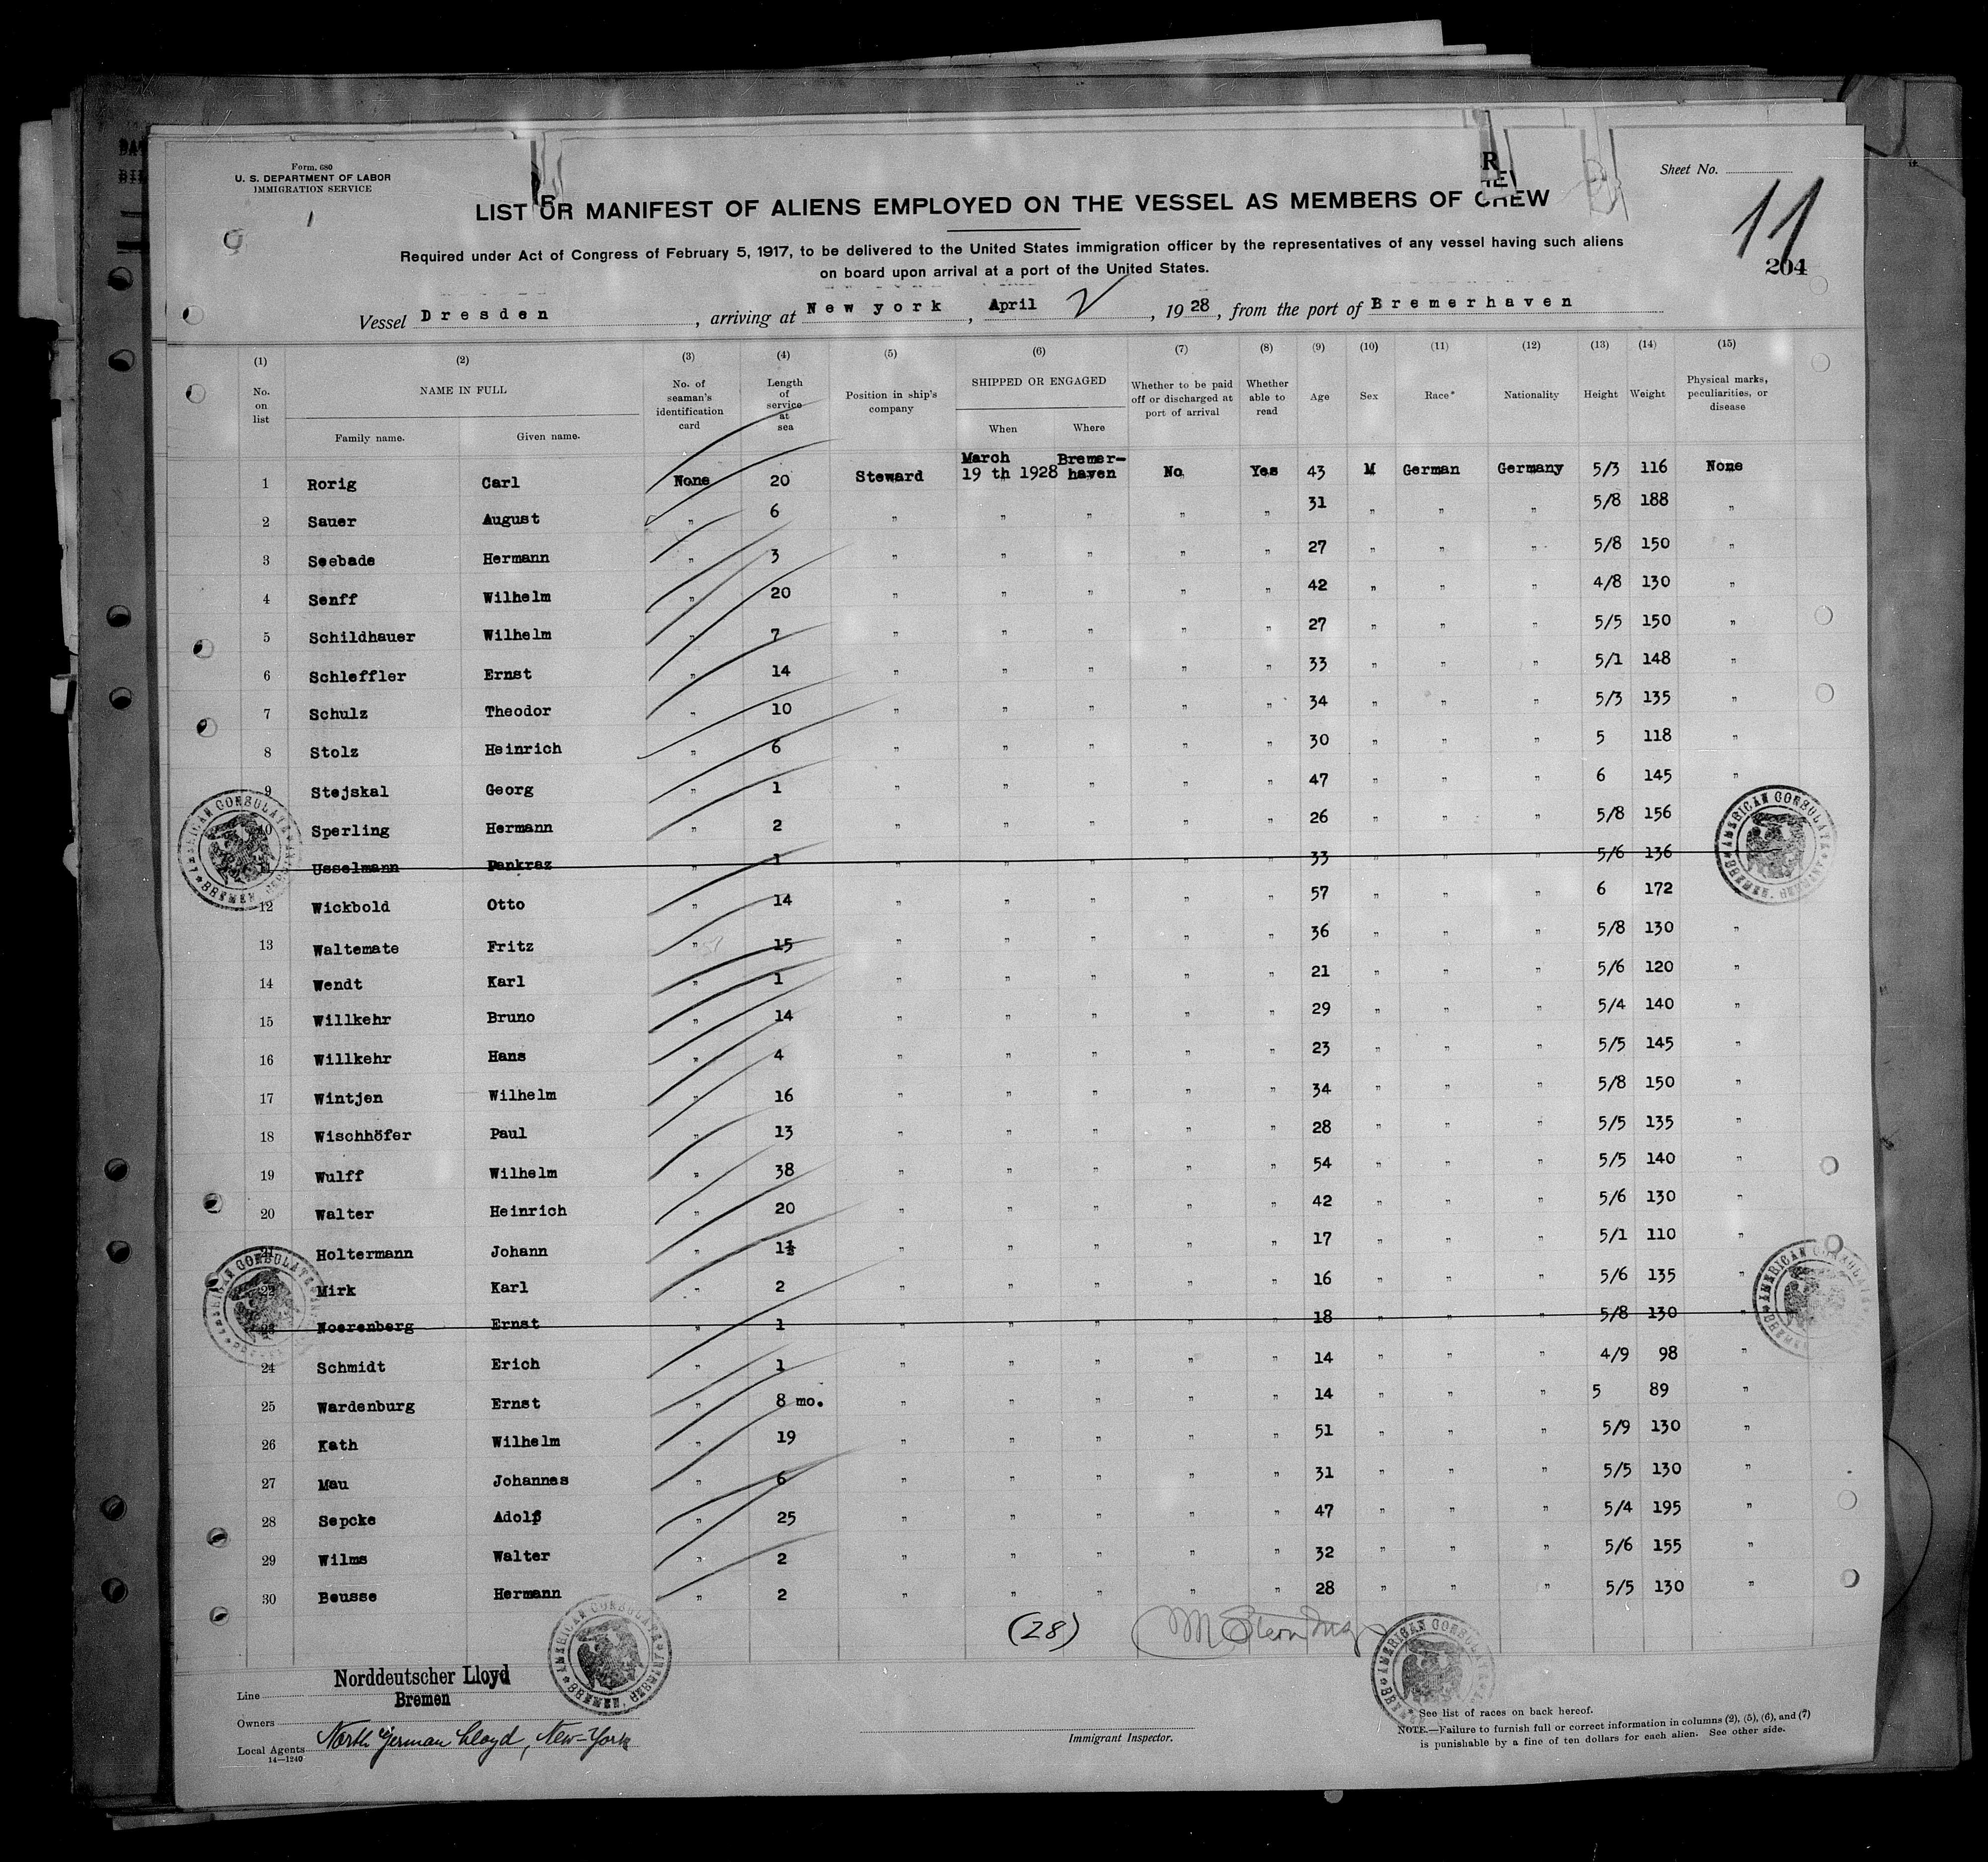 Form. 680
U. S. DEPARTMENT OF LABOR
IMMIGRATION SERVICE
1
Sheet No.
11
204
LIST OR MANIFEST OF ALIENS EMPLOYED ON THE VESSEL AS MEMBERS OF CREW
Required under Act of Congress of February 5, 1917, to be delivered to the United States immigration officer by the representatives of any vessel having such aliens
on board upon arrival at a port of the United States.
Vessel Dresden, arriving at New york, April 2, 1928, from the port of Bremerhaven
(1) (2) (3) (4) (5) (6) (7) (8) (9) (10) (11) (12) (13) (14) (15)
No. on list NAME IN FULL Family name. Given name. No. of seaman's identification card Length of service at sea Position in ship's company SHIPPED OR ENGAGED When Where Whether to be paid off or discharged at port of arrival Whether able to read Age Sex Race* Nationality Height Weight Physical marks, peculiarities, or disease
1 Rorig Carl None 20 Steward March 19 th 1928 Bremer-haven No Yes 43 M German Germany 5/3 116 None
2 Sauer August " 6 " " " " " 31 " " " 5/8 188 "
3 Seebade Hermann " 3 " " " " " 27 " " " 5/8 150 "
4 Senff Wilhelm " 20 " " " " " 42 " " " 4/8 130 "
5 Schildhauer Wilhelm " 7 " " " " " 27 " " " 5/5 150 "
6 Schleffler Ernst " 14 " " " " " 33 " " " 5/1 148 "
7 Schulz Theodor " 10 " " " " " 34 " " " 5/3 135 "
8 Stolz Heinrich " 6 " " " " " 30 " " " 5 118 "
9 Stejskal Georg " 1 " " " " " 47 " " " 6 145 "
10 Sperling Hermann " 2 " " " " " 26 " " " 5/8 156
11 Usselmann Pankraz " 1 " " " " " 33 " " " 5/6 136
12 Wickbold Otto " 14 " " " " " 57 " " " 6 172
13 Waltemate Fritz " 15 " " " " " 36 " " " 5/8 130 "
14 Wendt Karl " 1 " " " " " 21 " " " 5/6 120 "
15 Willkehr Bruno " 14 " " " " " 29 " " " 5/4 140 "
16 Willkehr Hans " 4 " " " " " 23 " " " 5/5 145 "
17 Wintjen Wilhelm " 16 " " " " " 34 " " " 5/8 150 "
18 Wischhöfer Paul " 13 " " " " " 28 " " " 5/5 135 "
19 Wulff Wilhelm " 38 " " " " " 54 " " " 5/5 140 "
20 Walter Heinrich " 20 " " " " " 42 " " " 5/6 130 "
21 Holtermann Johann " 1½ " " " " " 17 " " " 5/1 110 "
22 Mirk Karl " 2 " " " " " 16 " " " 5/6 135 "
23 Noerenberg Ernst " 1 " " " " " 18 " " " 5/8 130 "
24 Schmidt Erich " 1 " " " " " 14 " " " 4/9 98 "
25 Wardenburg Ernst " 8 mo. " " " " " 14 " " " 5 89 "
26 Kath Wilhelm " 19 " " " " " 51 " " " 5/9 130 "
27 Mau Johannes " 6 " " " " " 31 " " " 5/5 130 "
28 Sepcke Adolf " 25 " " " " " 47 " " " 5/4 195 "
29 Wilms Walter " 2 " " " " " 32 " " " 5/6 155 "
30 Beusse Hermann " 2 " " " " " 28 " " " 5/5 130 "
(28)
AMERICAN CONSULATE
BREMEN, GERMANY
AMERICAN CONSULATE
BREMEN, GERMANY
AMERICAN CONSULATE
BREMEN
AMERICAN CONSULATE
BREMEN
AMERICAN CONSULATE
BREMEN, GERMANY
AMERICAN CONSULATE
BREMEN
Line Norddeutscher Lloyd
Bremen
Owners
Local Agents North German Lloyd, New-York
14—1240
Immigrant Inspector.
* See list of races on back hereof.
NOTE.—Failure to furnish full or correct information in columns (2), (5), (6), and (7)
is punishable by a fine of ten dollars for each alien. See other side.